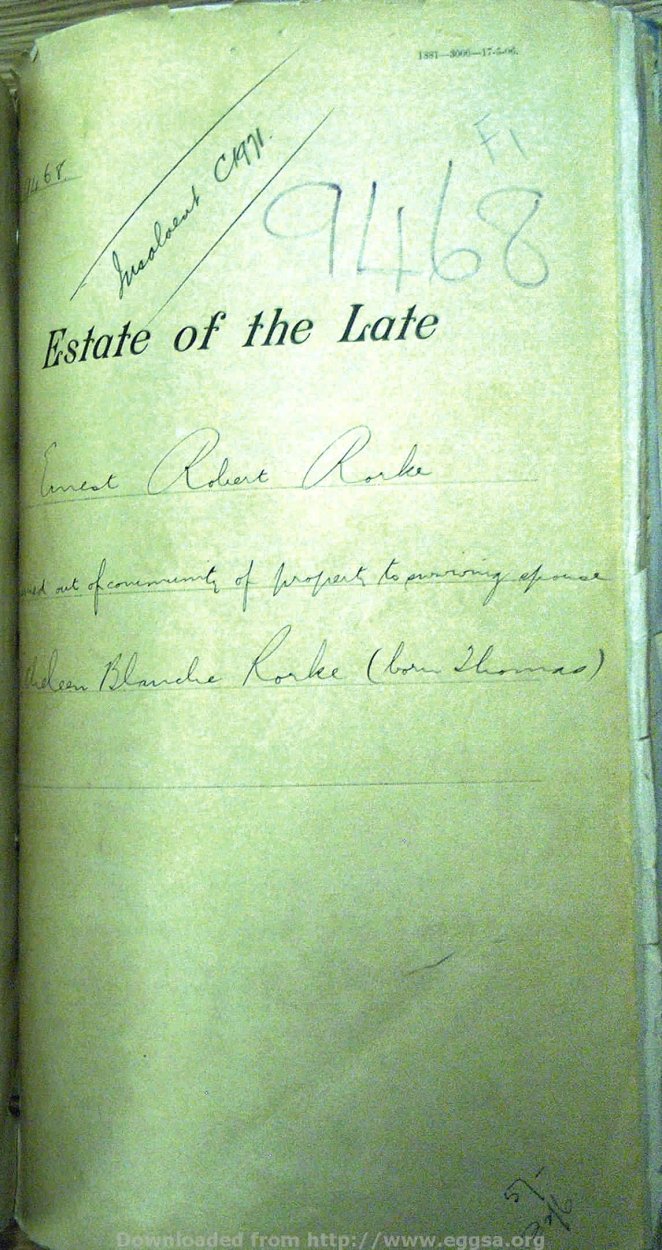 1881—3000—17-5-06.
F1
9468
Insolvent C1971.
Estate of the Late
Ernest Robert Rorke
out of community of property to surviving spouse
Blanche Rorke (born Thomas)
5/-
Downloaded from http://www.eggsa.org